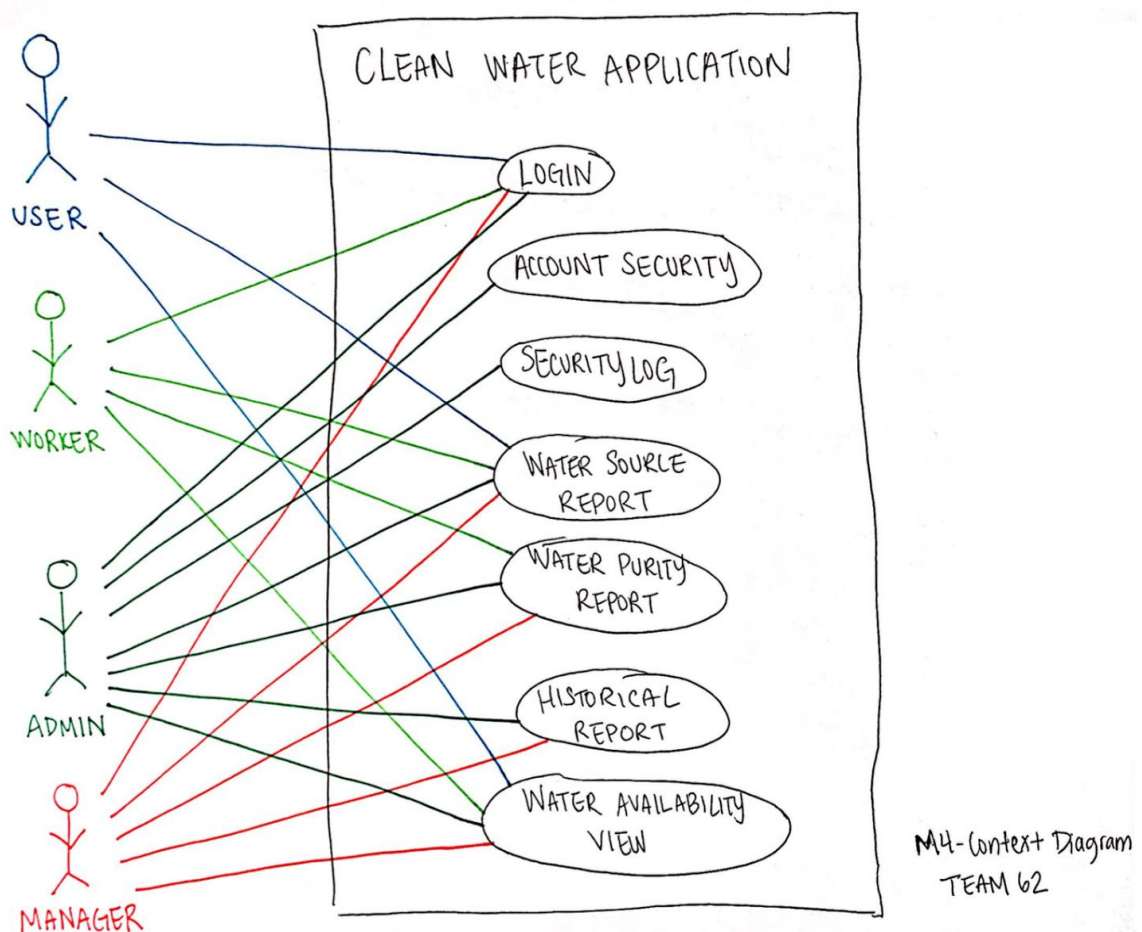 CLEAN WATER APPLICATION
USER
WORKER
ADMIN
MANAGER
LOGIN
ACCOUNT SECURITY
SECURITY LOG
WATER SOURCE
REPORT
WATER PURITY
REPORT
HISTORICAL
REPORT
WATER AVAILABILITY
VIEW
M4-Context Diagram
TEAM 62